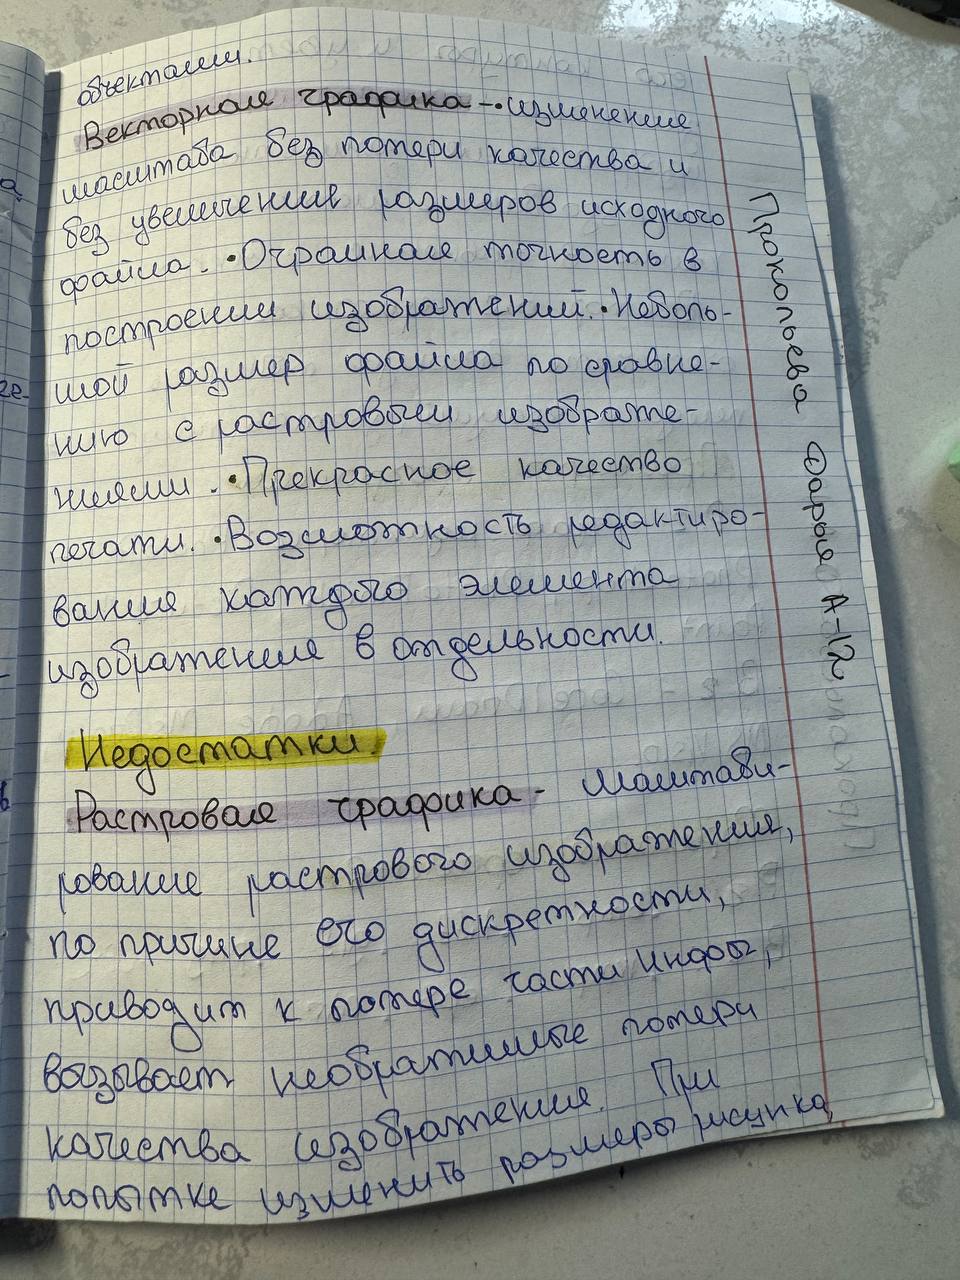 объектами.
Векторная графика - • изменение
масштаба без потери качества и
без увеличения размеров исходного
файла. • Огромная точность в
построении изображений. • Неболь-
шой размер файла по сравне-
нию с растровыми изображе-
ниями. • Прекрасное качество
печати. • Возможность редактиро-
вания каждого элемента
изображения в отдельности.
Недостатки
Растровая графика - Маштаби-
рование растрового изображения,
по причине его дискретности,
приводит к потере части инфы,
вызывает необратимые потери
качества изображения. При
попытке изменить размеры рисунка,
Прокопьева Дарья А-12